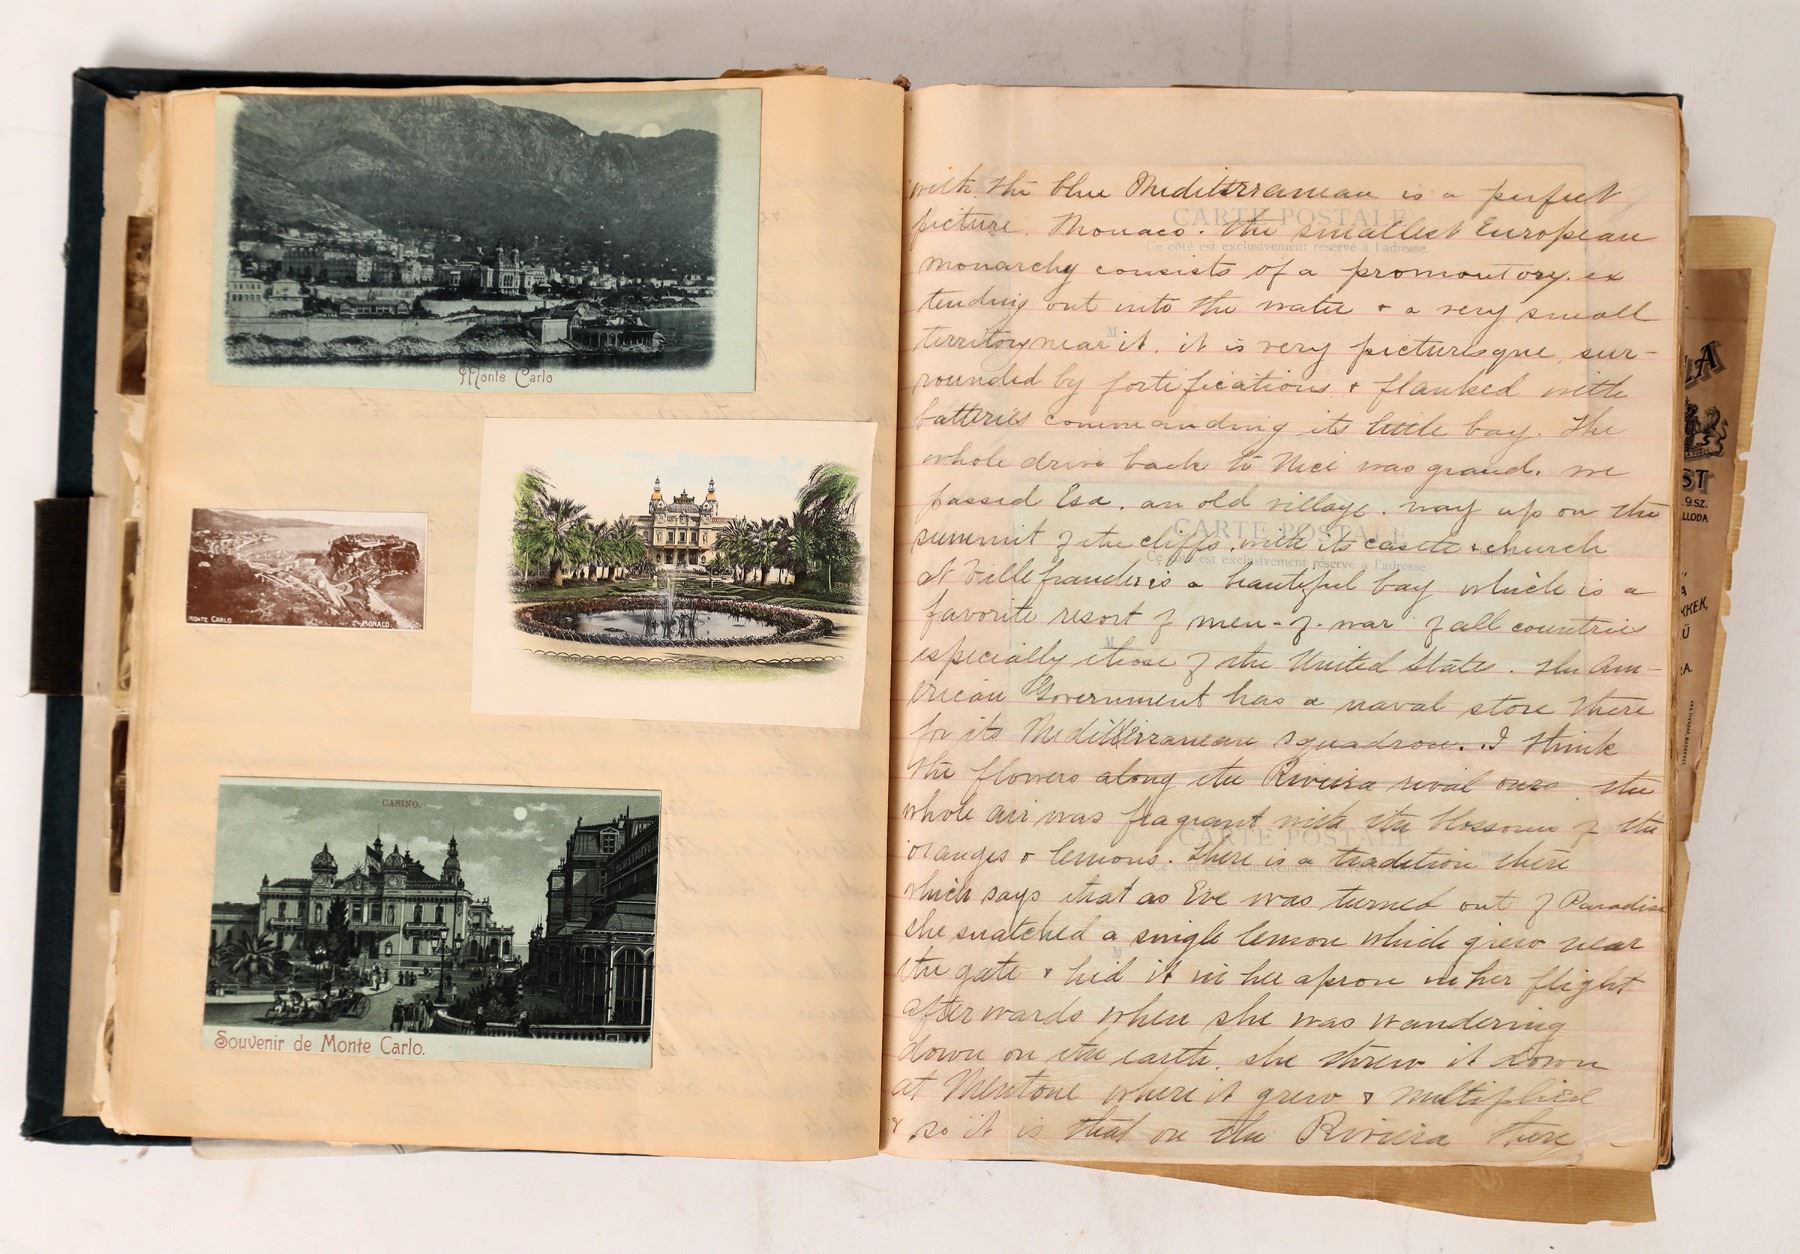 Monte Carlo
MONTE CARLO
ET MONACO.
CASINO.
Souvenir de Monte Carlo.
with the blue Mediterranean is a perfect
picture. Monaco. the smallest European
monarchy consists of a promontory. ex
tending out into the water + a very small
territory near it. it is very picturesque, sur-
rounded by fortifications + flanked with
batteries commanding its little bay. The
whole drive back to Nice was grand. we
passed Esa. an old village. way up on the
summit of the cliffs. with its castle + church
at Villefranche is a beautiful bay which is a
favorite resort of men-of-war of all countries
especially those of the United States. The Am-
erican Government has a naval store there
for its Mediterranean squadron. I think
the flowers along the Riviera rival ours. the
whole air was fragrant with the blossoms of the
oranges + lemons. There is a tradition there
which says that as Eve was turned out of Paradise
she snatched a single lemon which grew near
the gate + hid it in her apron in her flight
afterwards when she was wandering
down on the earth. she threw it down
at Mentone where it grew + multiplied
+ so it is that on the Riviera there
CARTE POSTALE
Ce côté est exclusivement réservé à l'adresse.
M
CARTE POSTALE
Ce côté est exclusivement réservé à l'adresse.
M
CARTE POSTALE
Ce côté est exclusivement réservé à l'adresse.
LA
ST
9.SZ.
LLODA
KKEK,
Ü
RA.